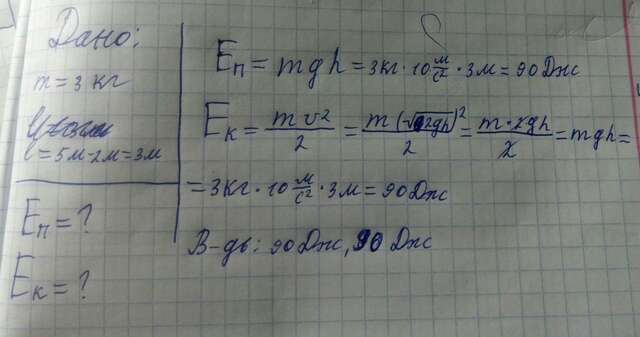 Дано:
m = 3 кг
l = 5м-2м=3м
Eп = ?
Eк = ?
Eп = mgh = 3кг · 10 м/с² · 3м = 90 Дж
Eк = mv²/2 = m(√2gh)²/2 = m·2gh/2 = mgh =
= 3кг · 10 м/с² · 3м = 90 Дж
В-дь: 90 Дж, 90 Дж